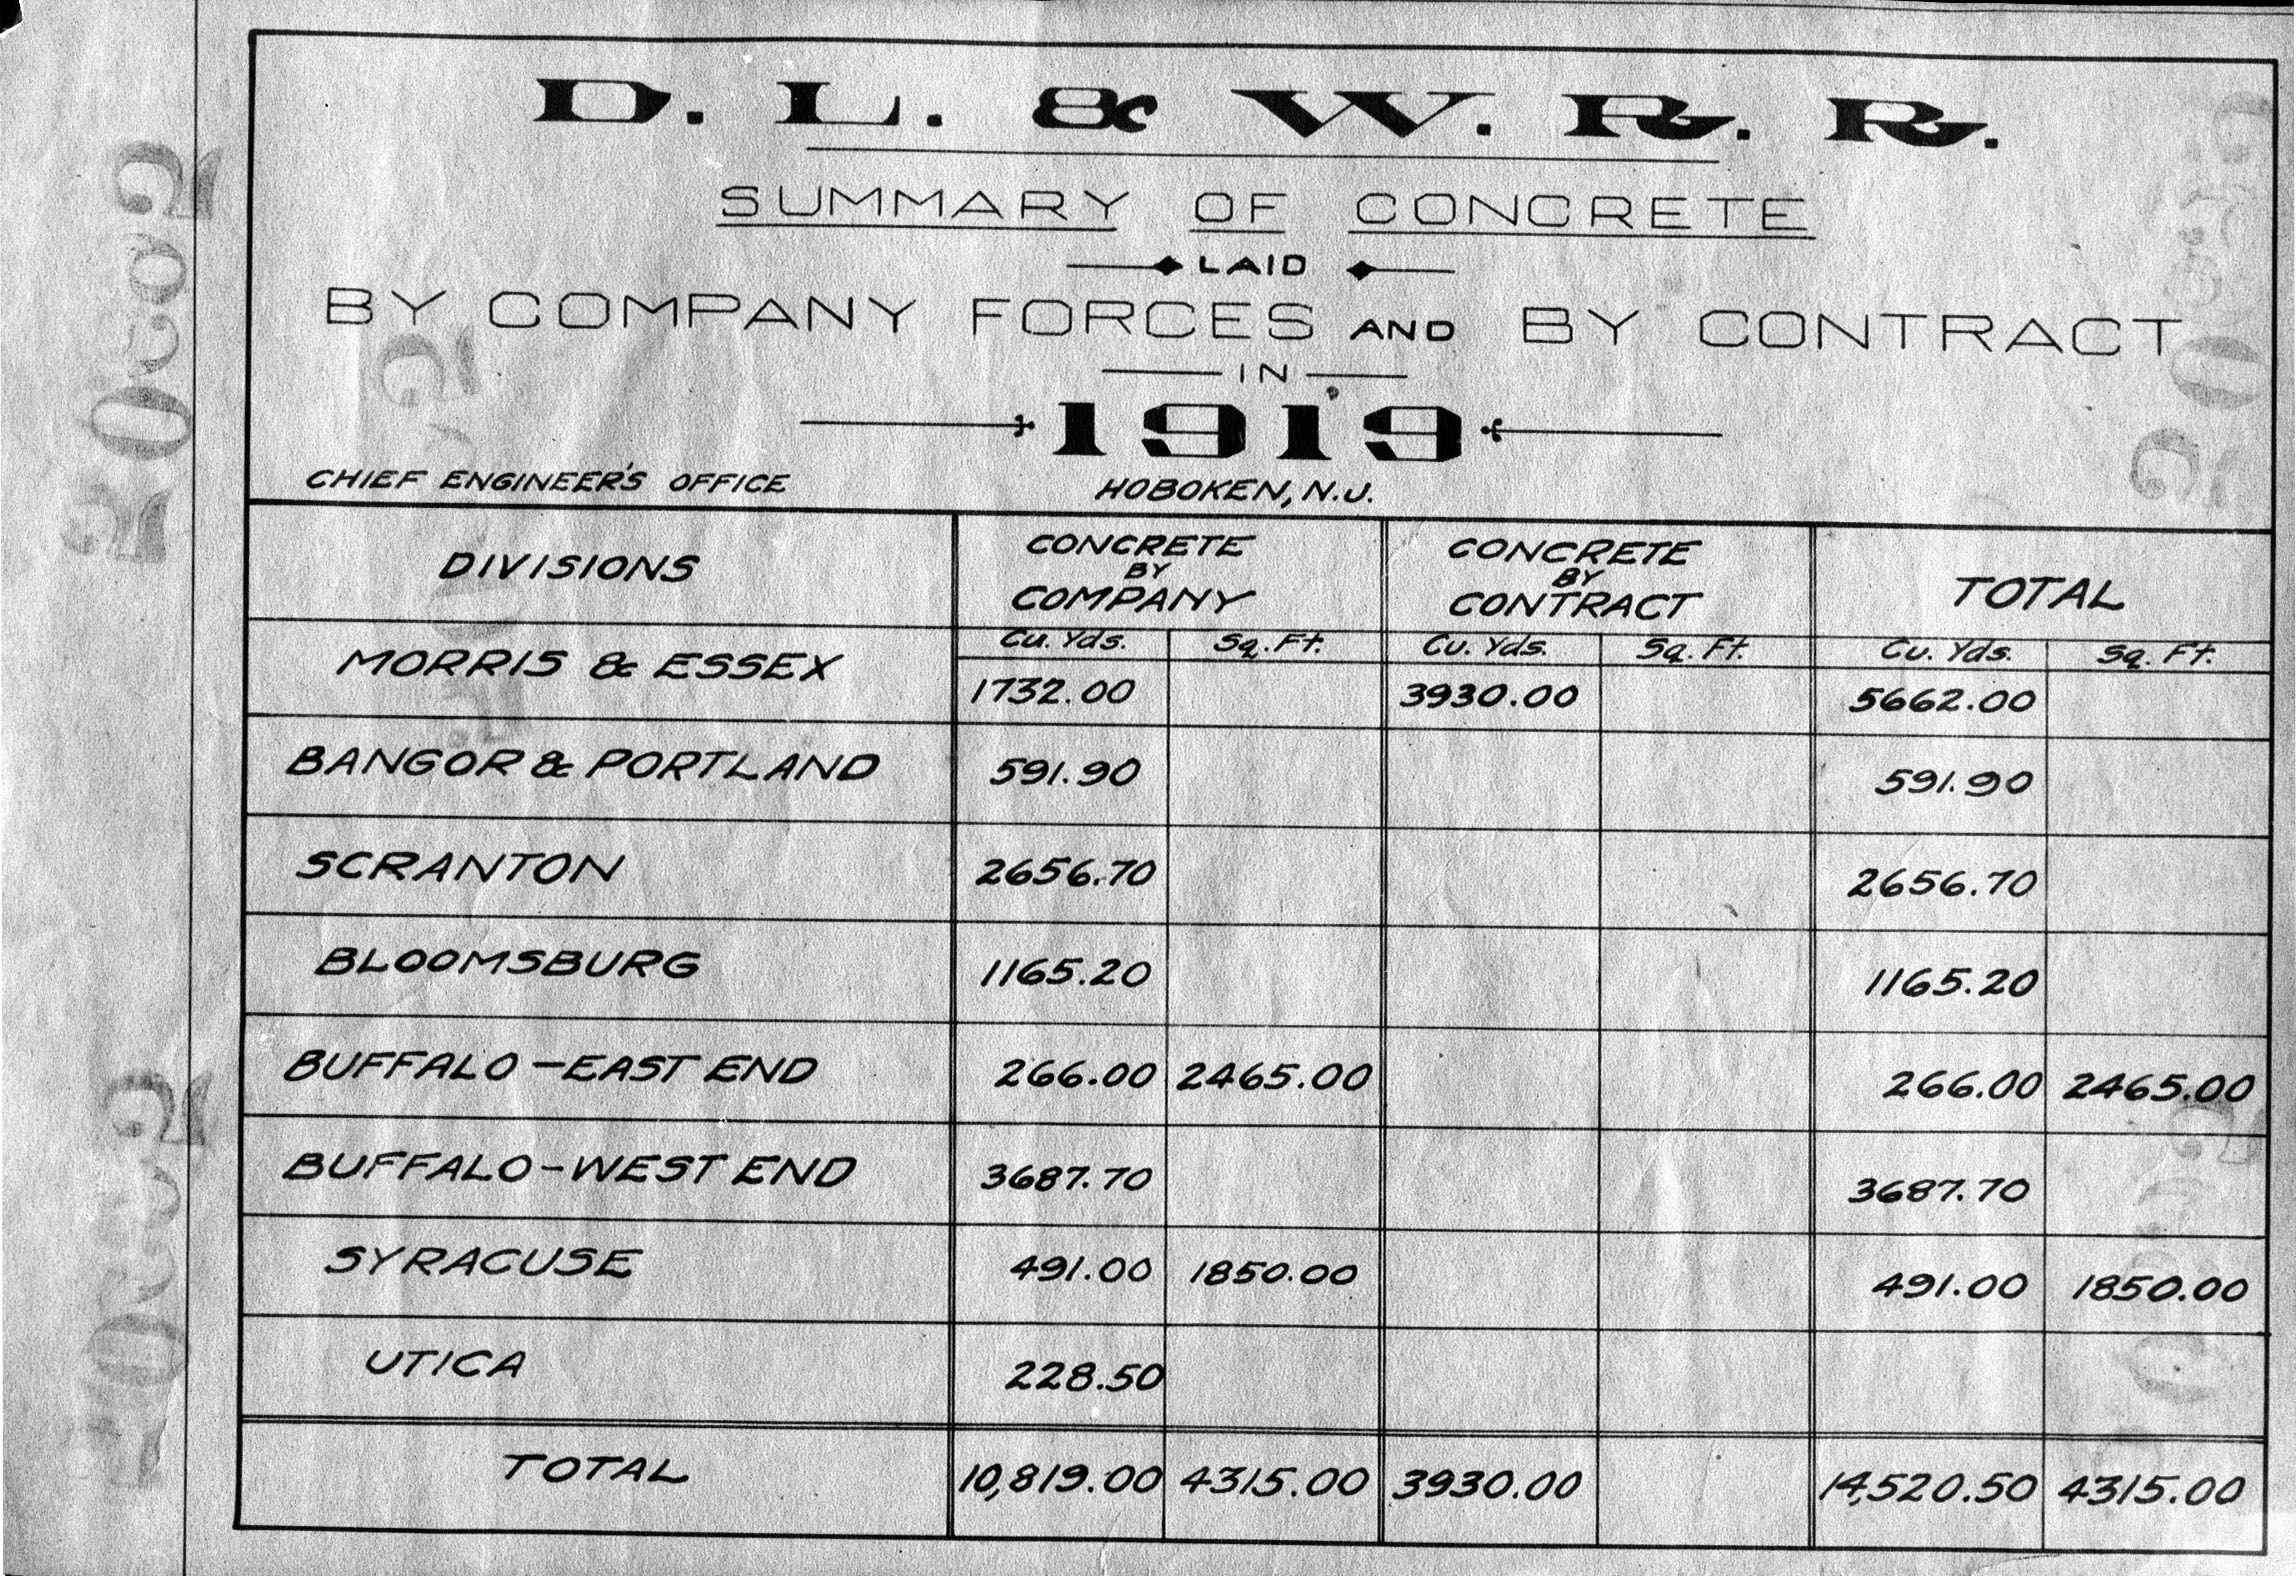 D. L. & W. R. R.
SUMMARY OF CONCRETE
LAID
BY COMPANY FORCES AND BY CONTRACT
IN
1919
CHIEF ENGINEER'S OFFICE HOBOKEN, N.J.
DIVISIONS CONCRETE BY COMPANY CONCRETE BY CONTRACT TOTAL
Cu. Yds. Sq. Ft. Cu. Yds. Sq. Ft. Cu. Yds. Sq. Ft.
MORRIS & ESSEX 1732.00 3930.00 5662.00
BANGOR & PORTLAND 591.90 591.90
SCRANTON 2656.70 2656.70
BLOOMSBURG 1165.20 1165.20
BUFFALO-EAST END 266.00 2465.00 266.00 2465.00
BUFFALO-WEST END 3687.70 3687.70
SYRACUSE 491.00 1850.00 491.00 1850.00
UTICA 228.50
TOTAL 10,819.00 4315.00 3930.00 14,520.50 4315.00